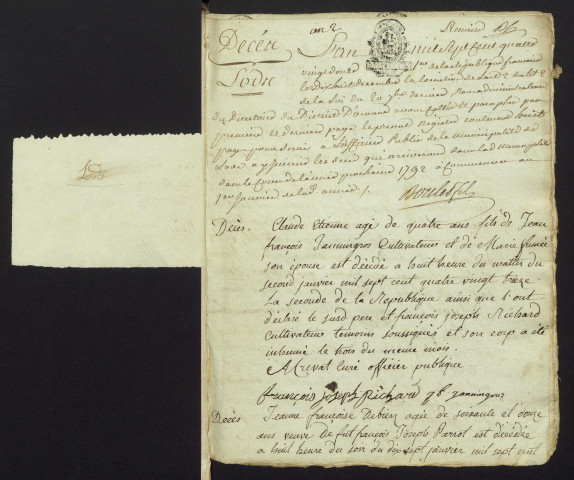 Lods
an 2
Premier
Décès
Lods
L'an mil Sept Cent quatre
vingt Douze 1er de la République françoise
le dix huit decembre la
de la Loi du 20 7bre dernier Nous administrateur
du Directoire du District D'Ornans avons Cotté et paraphé par
premiere et derniere page le present Registre contenant
pages pour Servir a L'officier Public de la municipalité de
Lods a y Inscrire les deces qui arriveront dans la d. municipalité
dans le Cours de L'année prochaine 1793 a Commencer au
1er Janvier de la d. année /.
Décès. Claude Etienne agé de quatre ans fils de Jean
françois Janningros Cultivateur et de Marie
son épouse est décédé a huit heure du matin du
second janvier mil sept cent quatre vingt trieze
La seconde de la République ainsi que l'ont
déclaré le susd pere et françois joseph Richard
Cultivateur temoins soussignés et son corp a été
inhumé le trois du meme mois.
A Creval Curé officier publique
françois joseph Richard jf. janningros
Décès Jeanne françoise Debiez agée de soixante et douze
ans veuve de fut françois Joseph Parrot est décédée
a huit heure du soir du dix sept janvier mil sept cent